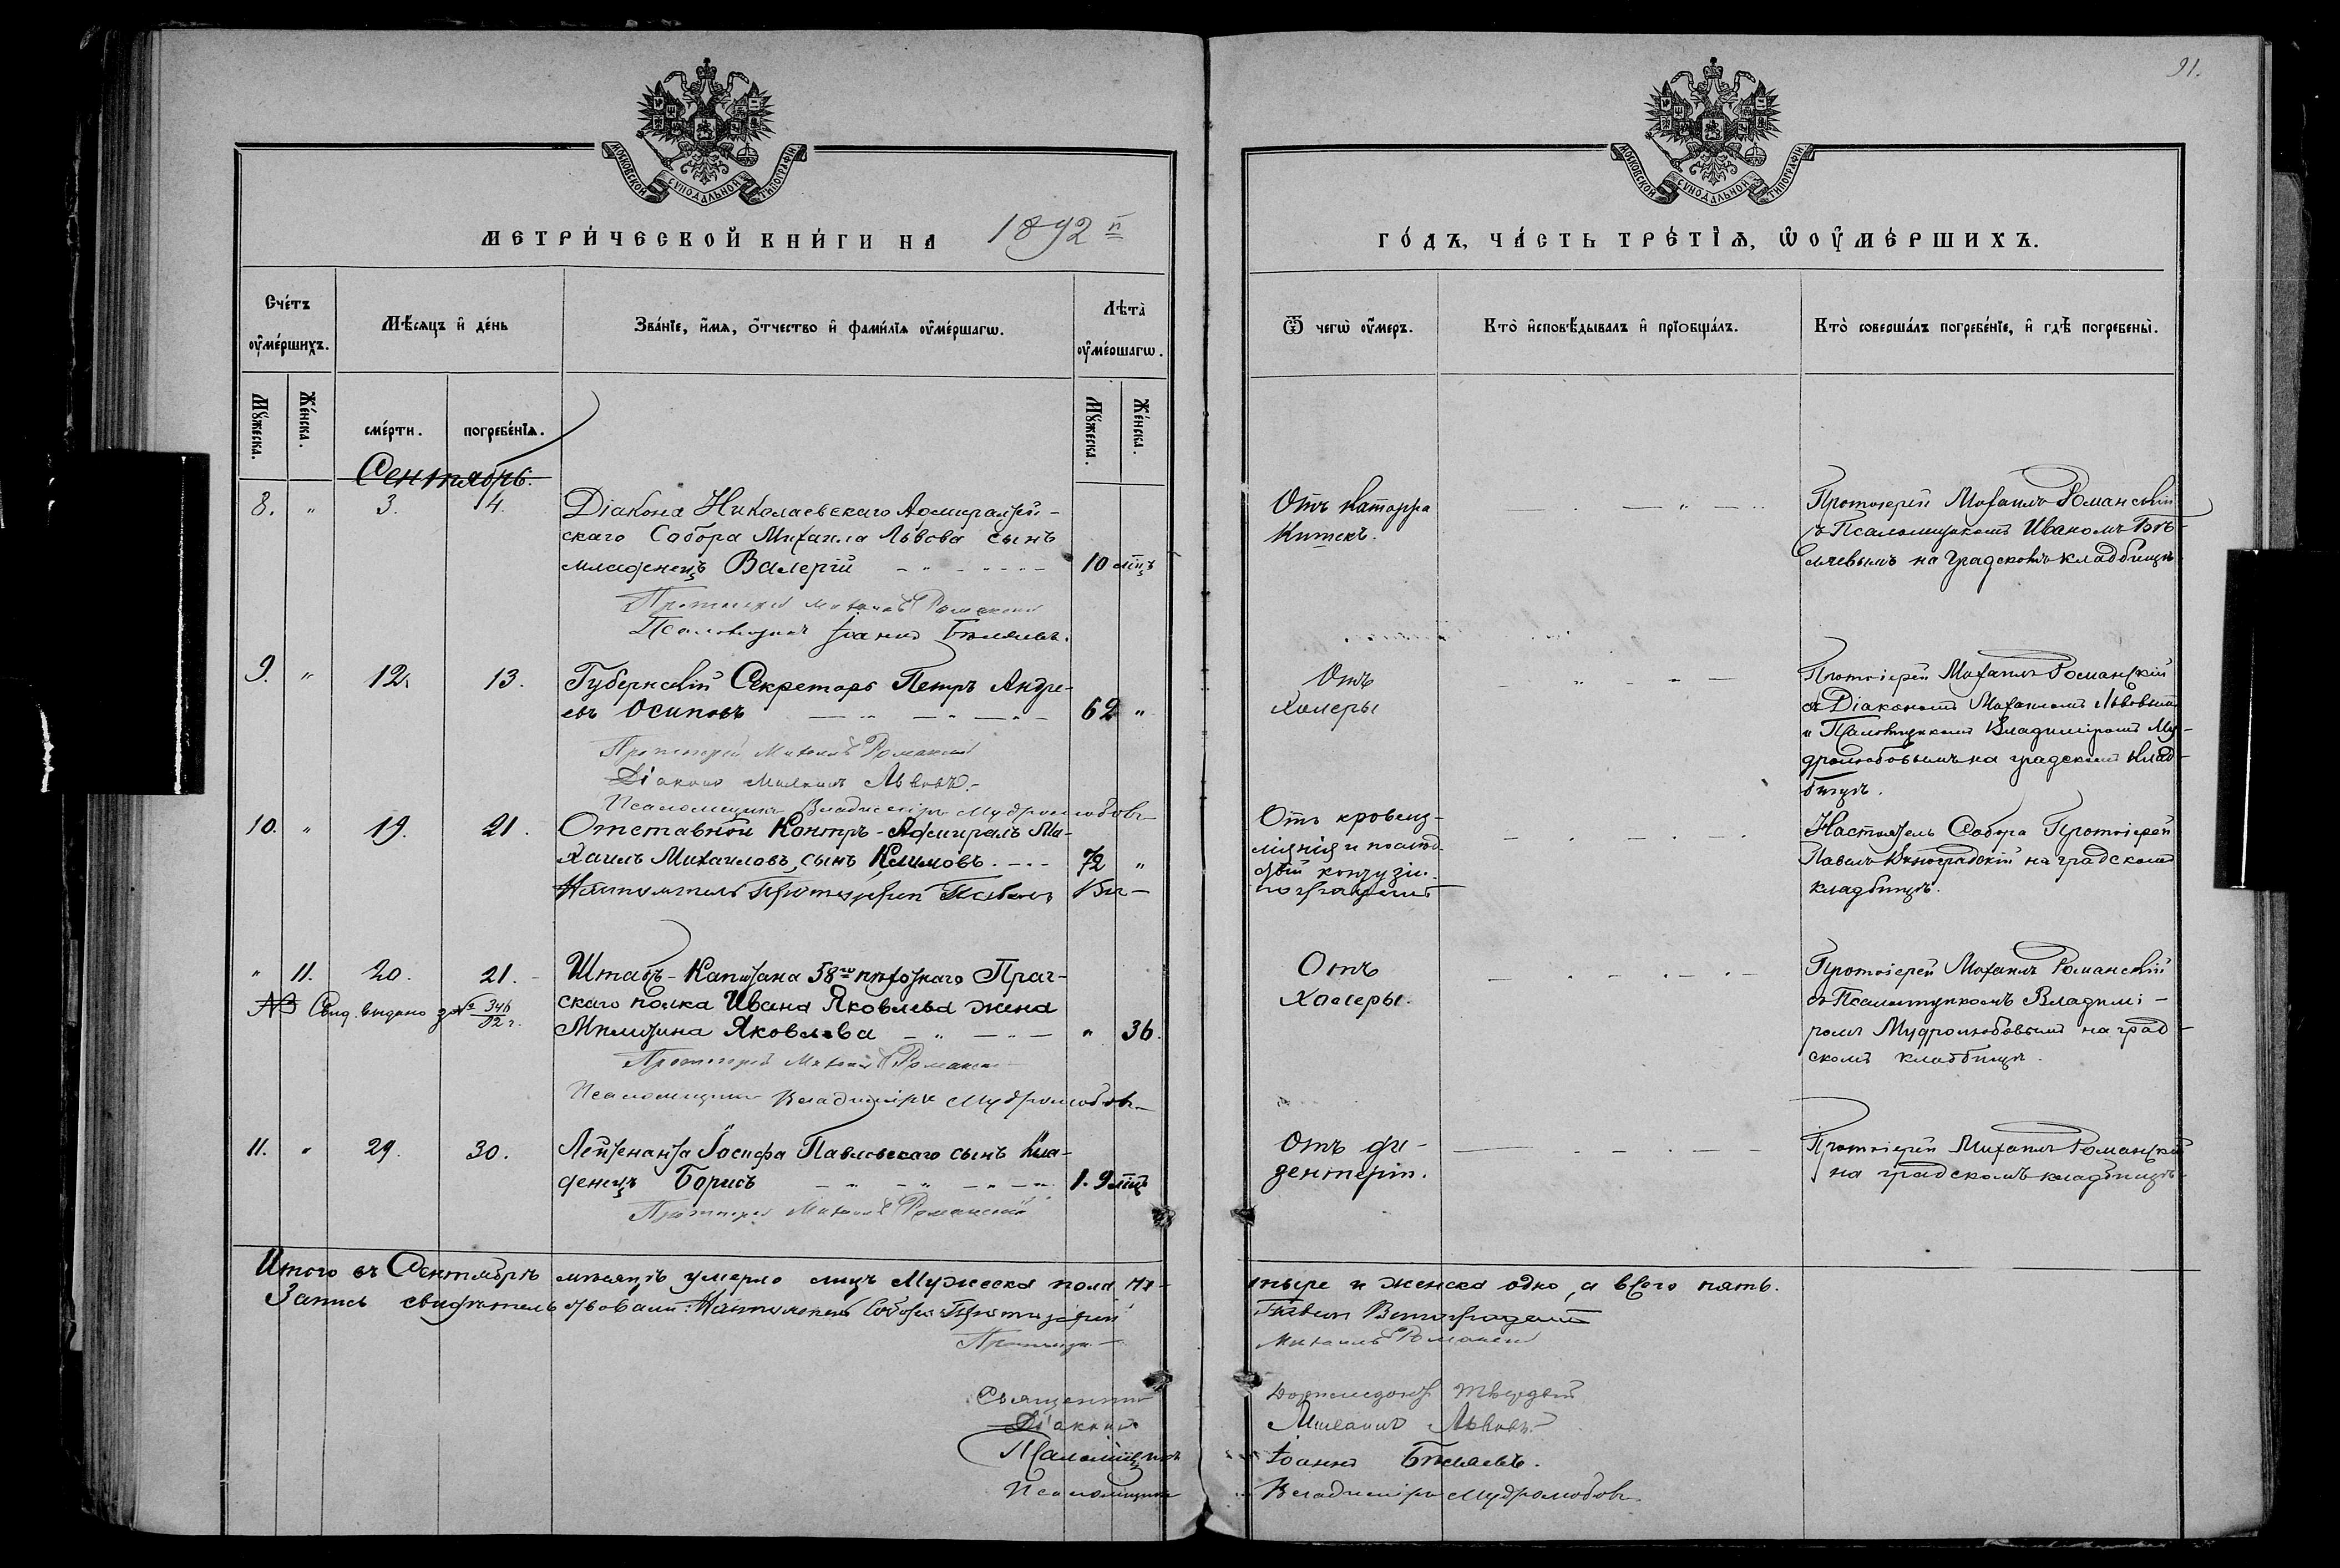 91.
МОСКОВСКОЙ СѴНОДАЛЬНОЙ ТИПОГРАФІИ
МОСКОВСКОЙ СѴНОДАЛЬНОЙ ТИПОГРАФІИ
МЕТРИ́ЧЕСКОЙ КНИ́ГИ НА 1892 й
ГО́ДЪ, ЧА́СТЬ ТРЕ́ТІѦ, Ѡ ОУ҆МЕ́РШИХЪ.
Сче́тъ оу҆ме́ршихъ.
Мѣ́сяцъ и҆ де́нь
Зва́нїе, и҆́мѧ, ѻ҆́тчество и҆ фами́лїѧ оу҆ме́ршагѡ.
Лѣта̀ оу҆ме́ршагѡ.
Ѿ чегѡ̀ оу҆́меръ.
Кто̀ и҆сповѣ́дывалъ и҆ прїѡбща́лъ.
Кто̀ соверша́лъ погребе́нїе, и҆ гдѣ̀ погребены̀.
Мꙋ́жеска.
Же́нска.
сме́рти.
погребе́нїѧ.
Мꙋ́жеска.
Же́нска.
Сентябрь.
8. " 3. 4.
Діакона Николаевскаго Адмиралтей-
скаго Собора Михаила Львова сынъ
младенецъ Валерій 10 мѣц
Протоіерей Михаилъ Романскій
Псаломщикъ Іоаннъ Бѣляевъ.
Отъ катарра
Кишекъ.
Протоіерей Михаилъ Романскій
съ Псаломщикомъ Иваномъ Бѣ-
ляевымъ на градскомъ кладбищѣ
9. " 12. 13.
Губернскій Секретарь Петръ Андре-
евъ Осиповъ 62 "
Протоіерей Михаилъ Романскій
Діаконъ Михаилъ Львовъ.
Псаломщикъ Владиміръ Мудролюбовъ
Отъ
Холеры
Протоіерей Михаилъ Романскій
съ Діакономъ Михаиломъ Львовымъ
и Псаломщикомъ Владиміромъ Му-
дролюбовымъ на градскомъ клад-
бищѣ.
10. " 19. 21.
Отставной Контръ-Адмиралъ Ми-
хаилъ Михаиловъ, сынъ Климовъ. 72 "
Настоятель Протоіерей Павелъ Ви-
ноградскій
Отъ кровеиз-
ліянія и послѣд-
Настоятель Собора Протоіерей
Павелъ Виноградскій на градскомъ
кладбищѣ.
" 11. 20. 21.
Штабъ-Капитана 58го пѣхотнаго Праг-
скаго полка Ивана Яковлева жена
Милитина Яковлева " 36.
NB Свид. выдано за № 346/92 г.
Протоіерей Михаилъ Романскій
Псаломщикъ Владиміръ Мудролюбовъ
Отъ
Холеры.
Протоіерей Михаилъ Романскій
съ Псаломщикомъ Владимі-
ромъ Мудролюбовымъ на град-
скомъ кладбищѣ.
11. " 29. 30.
Лейтенанта Іосифа Павловскаго сынъ мла-
денецъ Борисъ 1. 9 мѣц
Протоіерей Михаилъ Романскій
Отъ ди-
фтеріт.
Протоіерей Михаилъ Романскій
на градскомъ кладбищѣ.
Итого въ Сентябрѣ мѣсяцѣ умерло лицъ Мужеска пола че-
тыре и женска одно, а всего пять.
Запись свидѣтельствовали: Настоятель Собора Протоіерей
Павелъ Виноградскій
Протоіерей Михаилъ Романскій
Священникъ
Діаконъ Михаилъ Львовъ.
Псаломщикъ Іоаннъ Бѣляевъ.
Псаломщикъ Владиміръ Мудролюбовъ